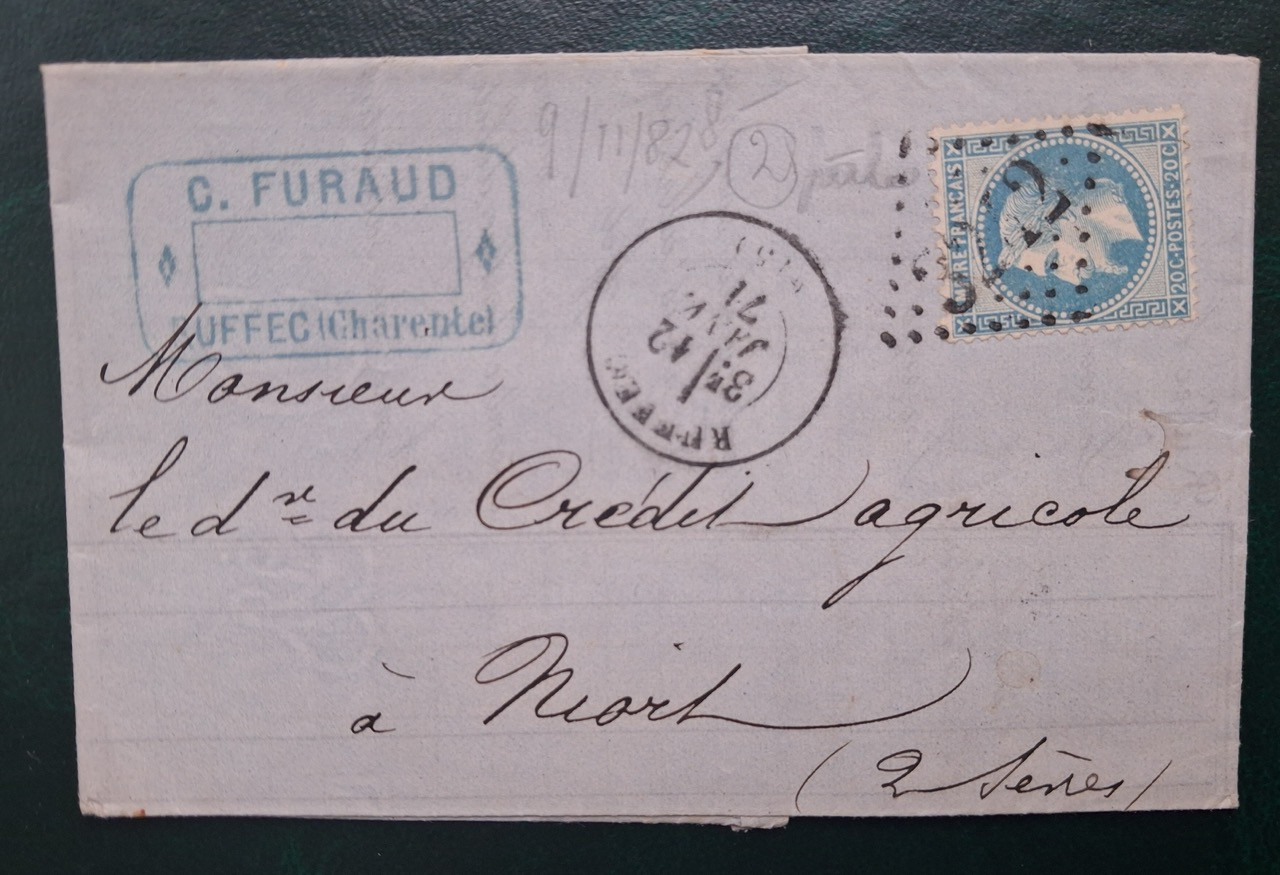 9/11/82
2
C. FURAUD
RUFFEC (Charente)
RUFFEC
3E
12
JANV.
71
(15)
EMPIRE FRANCAIS
20 C·POSTES·20 C
Monsieur
le dr du Crédit agricole
à Niort
(2 Sèvres)